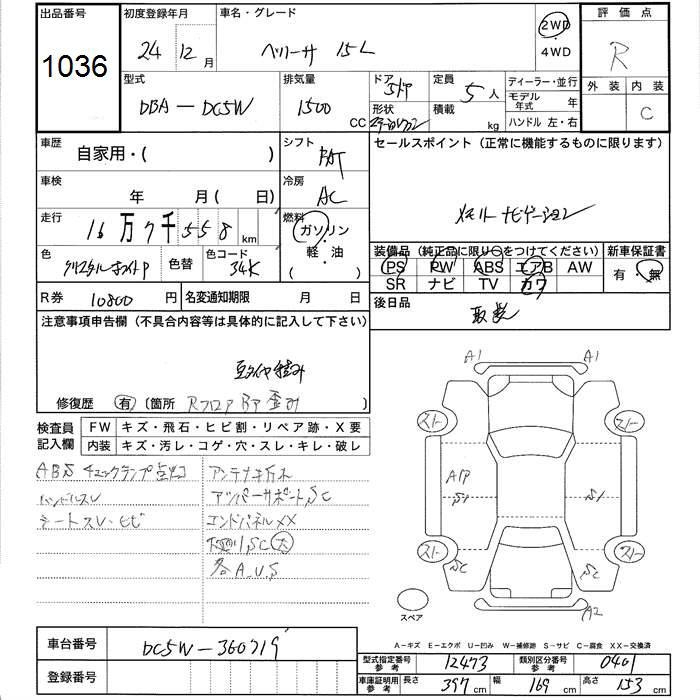 出品番号
1036
初度登録年月
24 12 月
車名・グレード
ベリーサ 15L
2WD
・
4WD
評価点
R
外装 内装
C
型式
DBA－DC5W
排気量
1500
CC
ドア
5ドア
形状
定員
5人
積載
kg
ディーラー・並行
モデル年式 年
ハンドル 左・右
車歴
自家用・( )
シフト
FAT
セールスポイント (正常に機能するものに限ります)
車検
年 月( 日)
冷房
AC
メモリーナビゲーション
走行
16万7千558 km
燃料
ガソリン
・
軽・油
( )
色
クリスタルホワイトP
色替
色コード
34K
装備品 (純正品に限り○をつけてください)
PS PW ABS エアB AW
SR ナビ TV カワ
新車保証書
有・無
R券 10800 円
名変通知期限 月 日
後日品
取説
注意事項申告欄 (不具合内容等は具体的に記入して下さい)
豆タイヤ積み
修復歴 有 〔箇所 RフロアBP歪み 〕
検査員記入欄
FW キズ・飛石・ヒビ割・リペア跡・X要
内装 キズ・汚レ・コゲ・穴・スレ・キレ・破レ
ABSチェックランプ点灯
ハンドルスレ
シートスレ・ヒビ
アンテナキズ
アッパーサポートSC
エンドパネルXX
下廻り SC 大
各A.U.S
A1 A1
スリー スリー
AP
S1 S1
スリー スリー
SC SC
A2
スペア
A－キズ E－エクボ U－凹み W－補修跡 S－サビ C－腐食 XX－交換済
車台番号 DC5W－360719
登録番号
型式指定番号参考 12473
類別区分番号参考 0401
車庫証明用参考 長さ 397 cm 幅 169 cm 高さ 153 cm